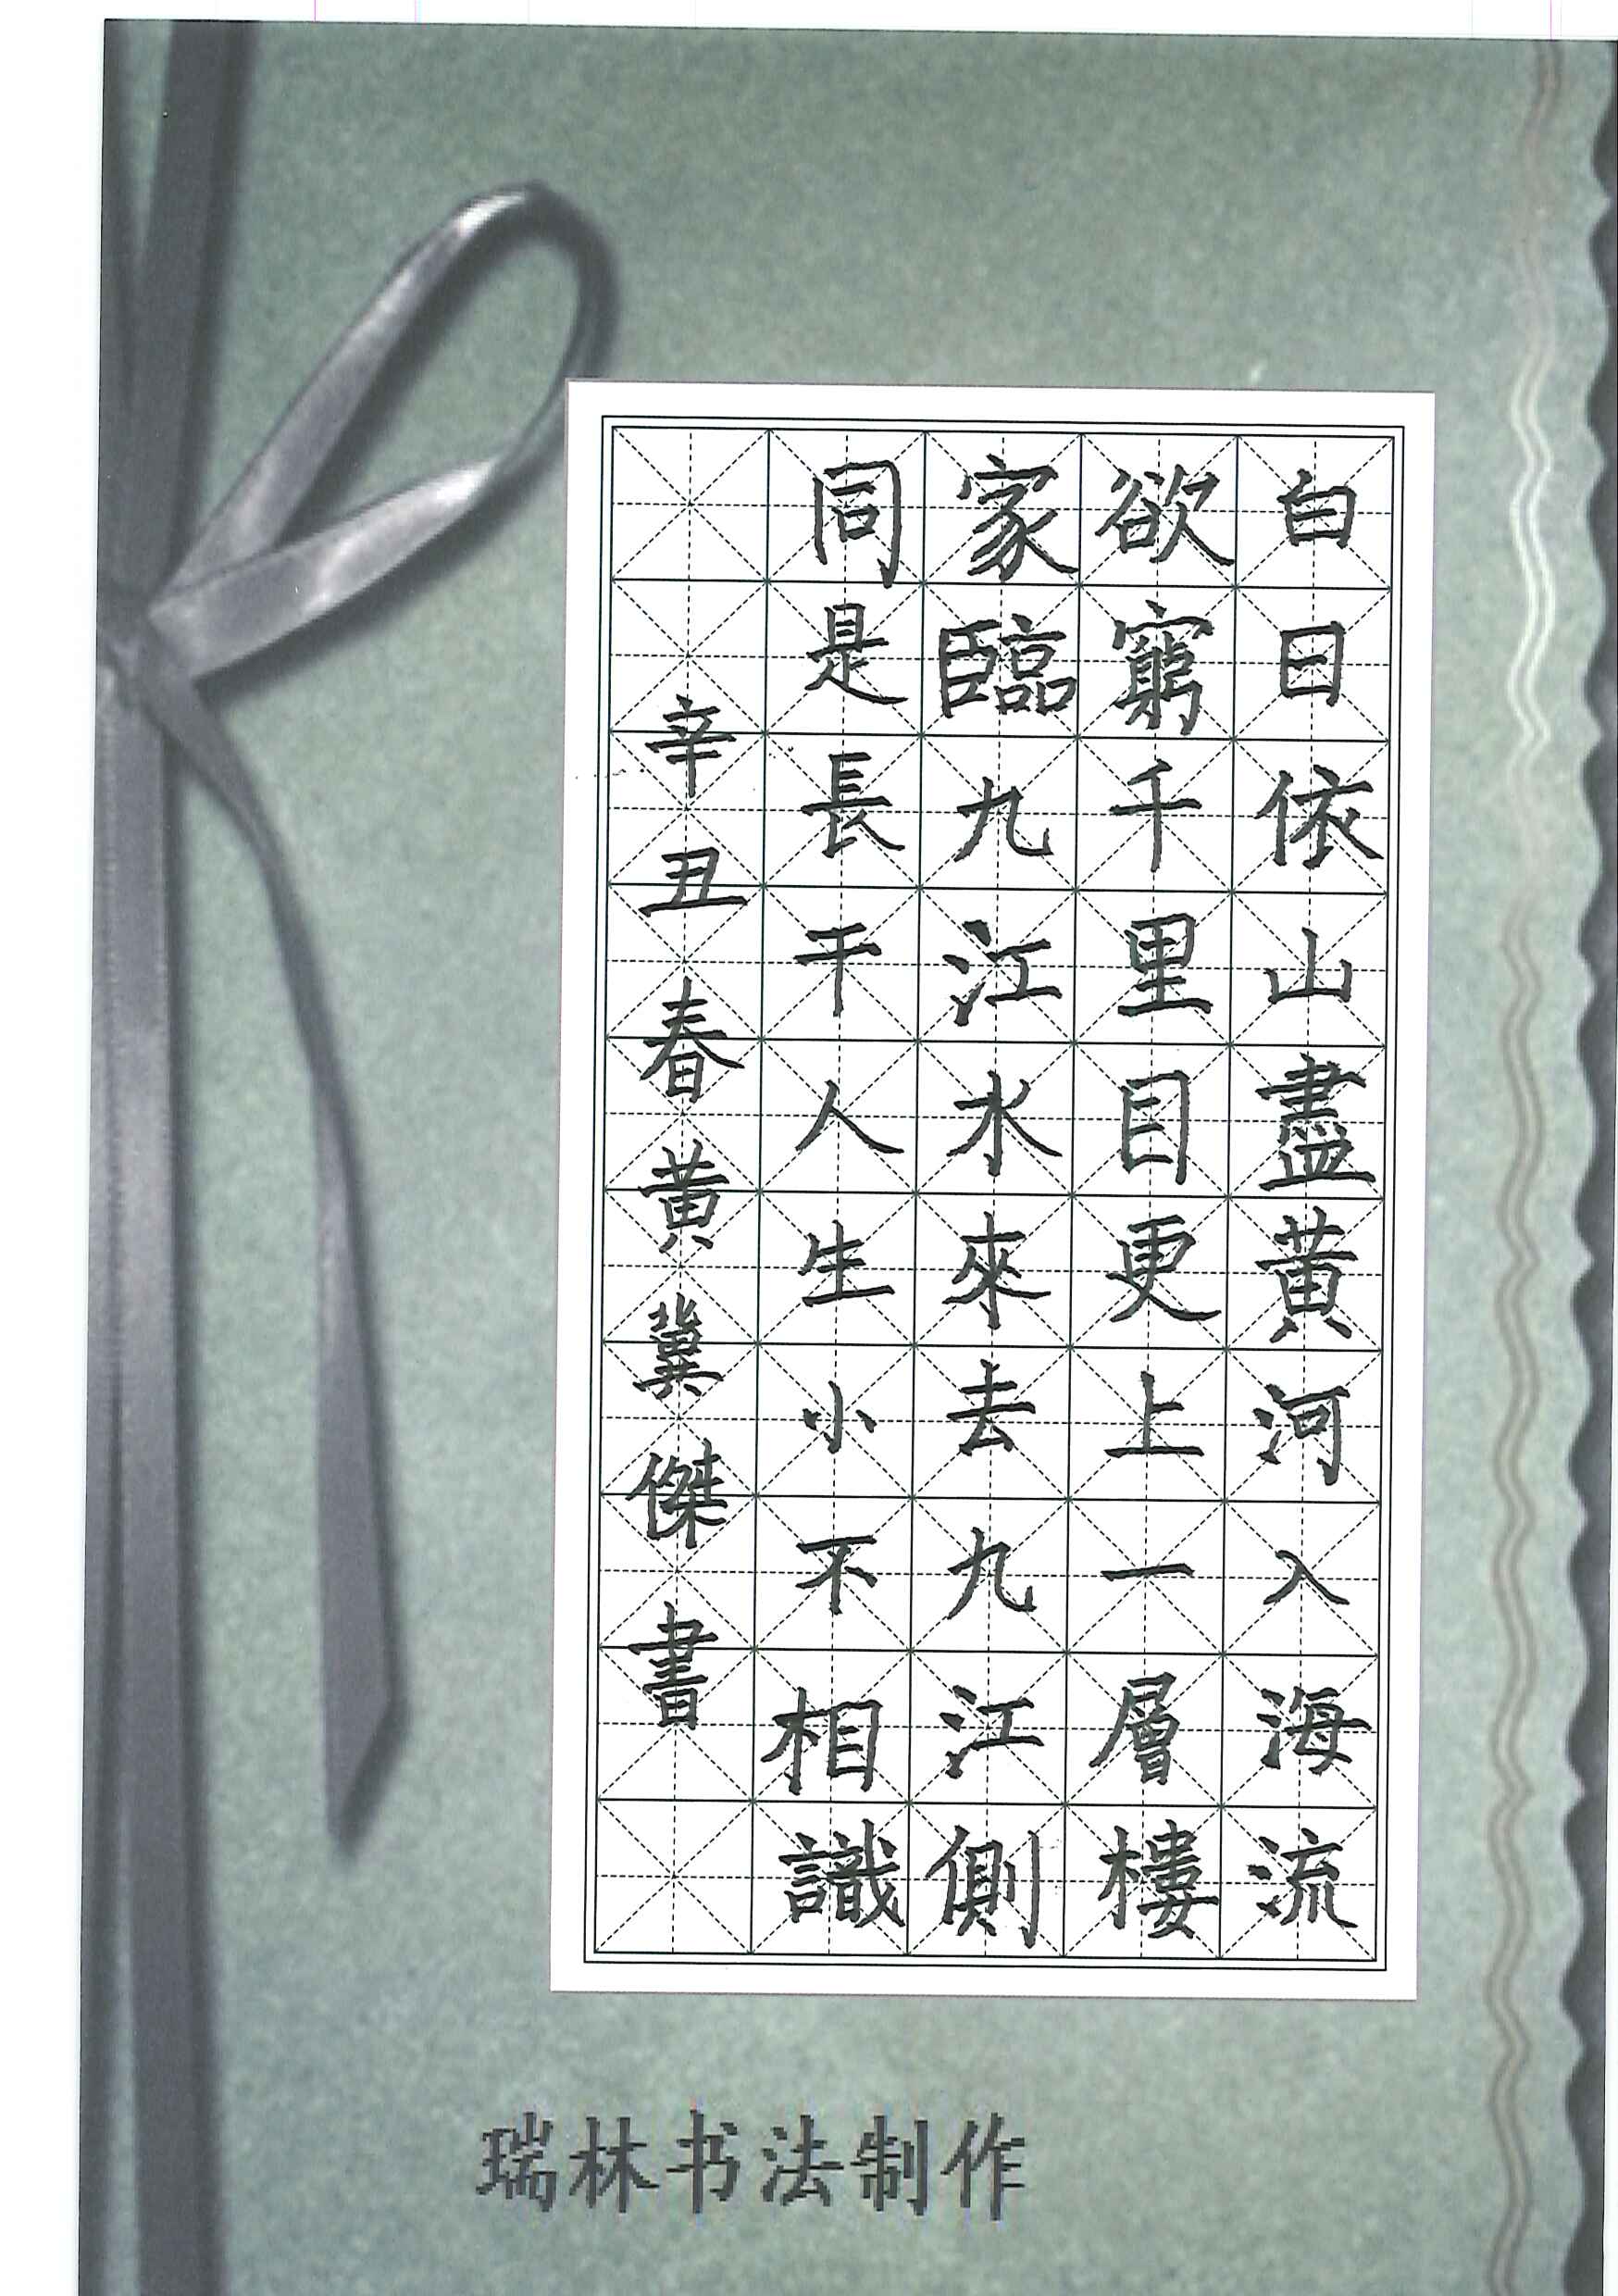 白日依山盡黄河入海流
欲窮千里目更上一層樓
家臨九江水來去九江側
同是長干人生小不相識
辛丑春黄冀傑書
瑞林书法制作